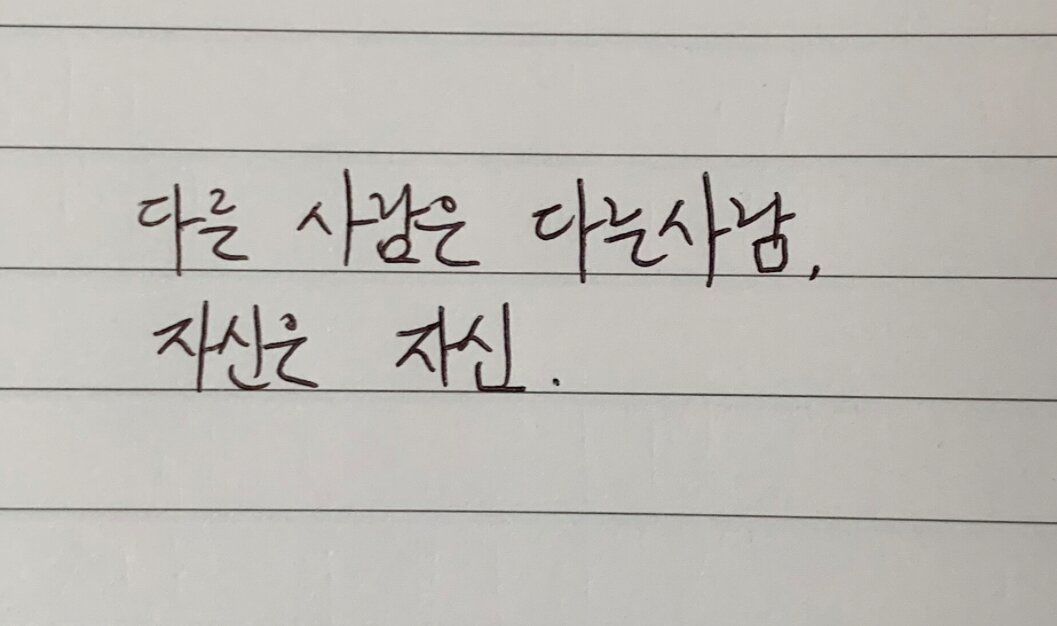 다른 사람은 다른사람,
자신은 자신.